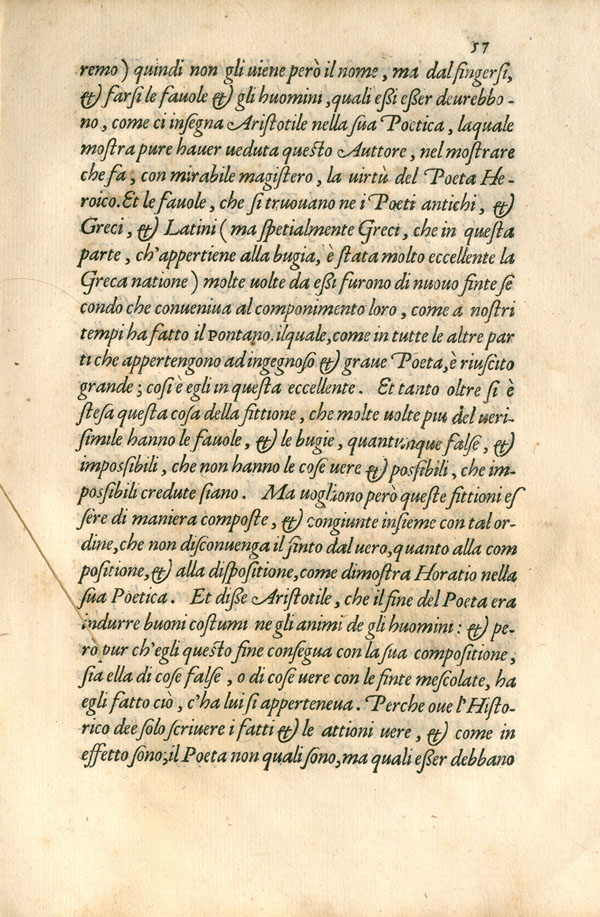 57
remo) quindi non gli uiene però il nome, ma dal fingersi,
& farsi le fauole & gli huomini, quali essi esser deurebbo-
no, come ci insegna Aristotile nella sua Poetica, laquale
mostra pure hauer ueduta questo Auttore, nel mostrare
che fa, con mirabile magistero, la virtù del Poeta He-
roico. Et le fauole, che si truouano ne i Poeti antichi, &
Greci, & Latini (ma spetialmente Greci, che in questa
parte, ch'appertiene alla bugia, è stata molto eccellente la
Greca natione) molte volte da essi furono di nuouo finte se
condo che conveniva al componimento loro, come a nostri
tempi ha fatto il Pontano. ilquale, come in tutte le altre par
ti che appertengono ad ingegnoso & graue Poeta, è riuscito
grande; cosi è egli in questa eccellente. Et tanto oltre si è
stesa questa cosa della fittione, che molte uolte piu del ueri-
simile hanno le fauole, & le bugie, quantunque false, &
impossibili, che non hanno le cose uere & possibili, che im-
possibili credute siano. Ma uogliono però queste fittioni es
sere di maniera composte, & congiunte insieme con tal or-
dine, che non disconuenga il finto dal vero, quanto alla com
positione, & alla dispositione, come dimostra Horatio nella
sua Poetica. Et disse Aristotile, che il fine del Poeta era
indurre buoni costumi ne gli animi de gli huomini: & pe-
rò pur ch'egli questo fine consegua con la sua compositione,
sia ella di cose false, o di cose vere con le finte mescolate, ha
egli fatto ciò, c'ha lui si apperteneva. Perche oue l'Histo-
rico dee solo scrivere i fatti & le attioni uere, & come in
effetto sono; il Poeta non quali sono, ma quali esser debbano